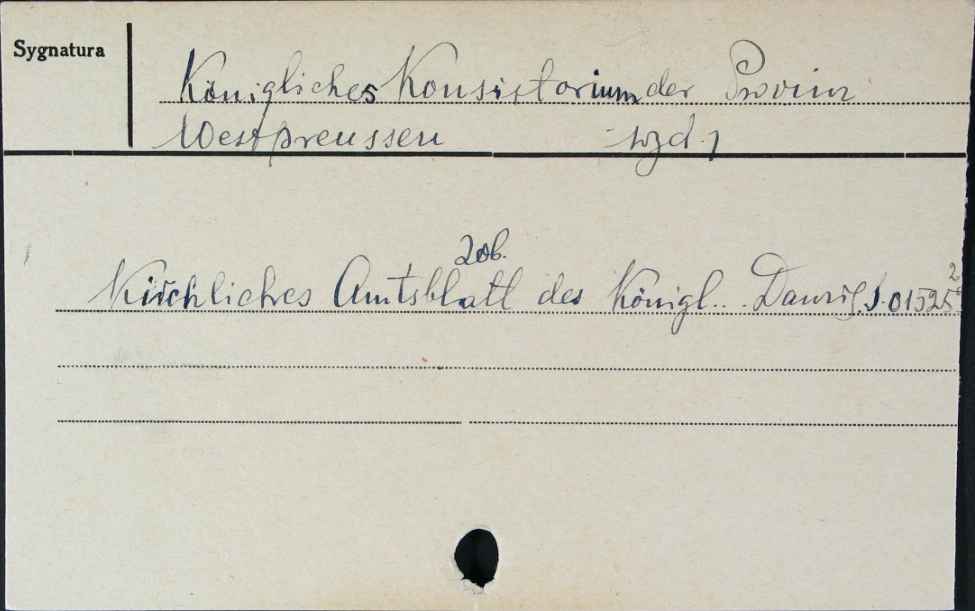 Sygnatura
Königliches Konsistorium der Provinz
Westpreussen wyd.
zob.
Kirchliches Amtsblatt des Königl... Danzig. S. 01525
2